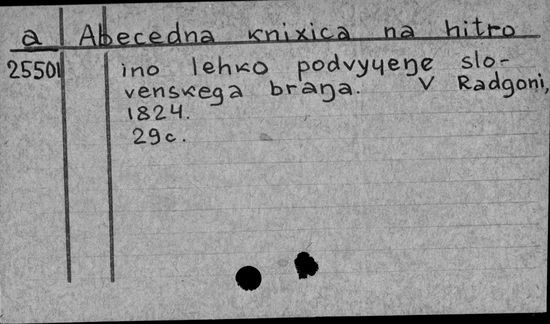 a Abecedna knixica na hitro
25501 ino lehko podvyчeŋe slo-
venskega braŋa. V Radgoni,
1824.
29c.